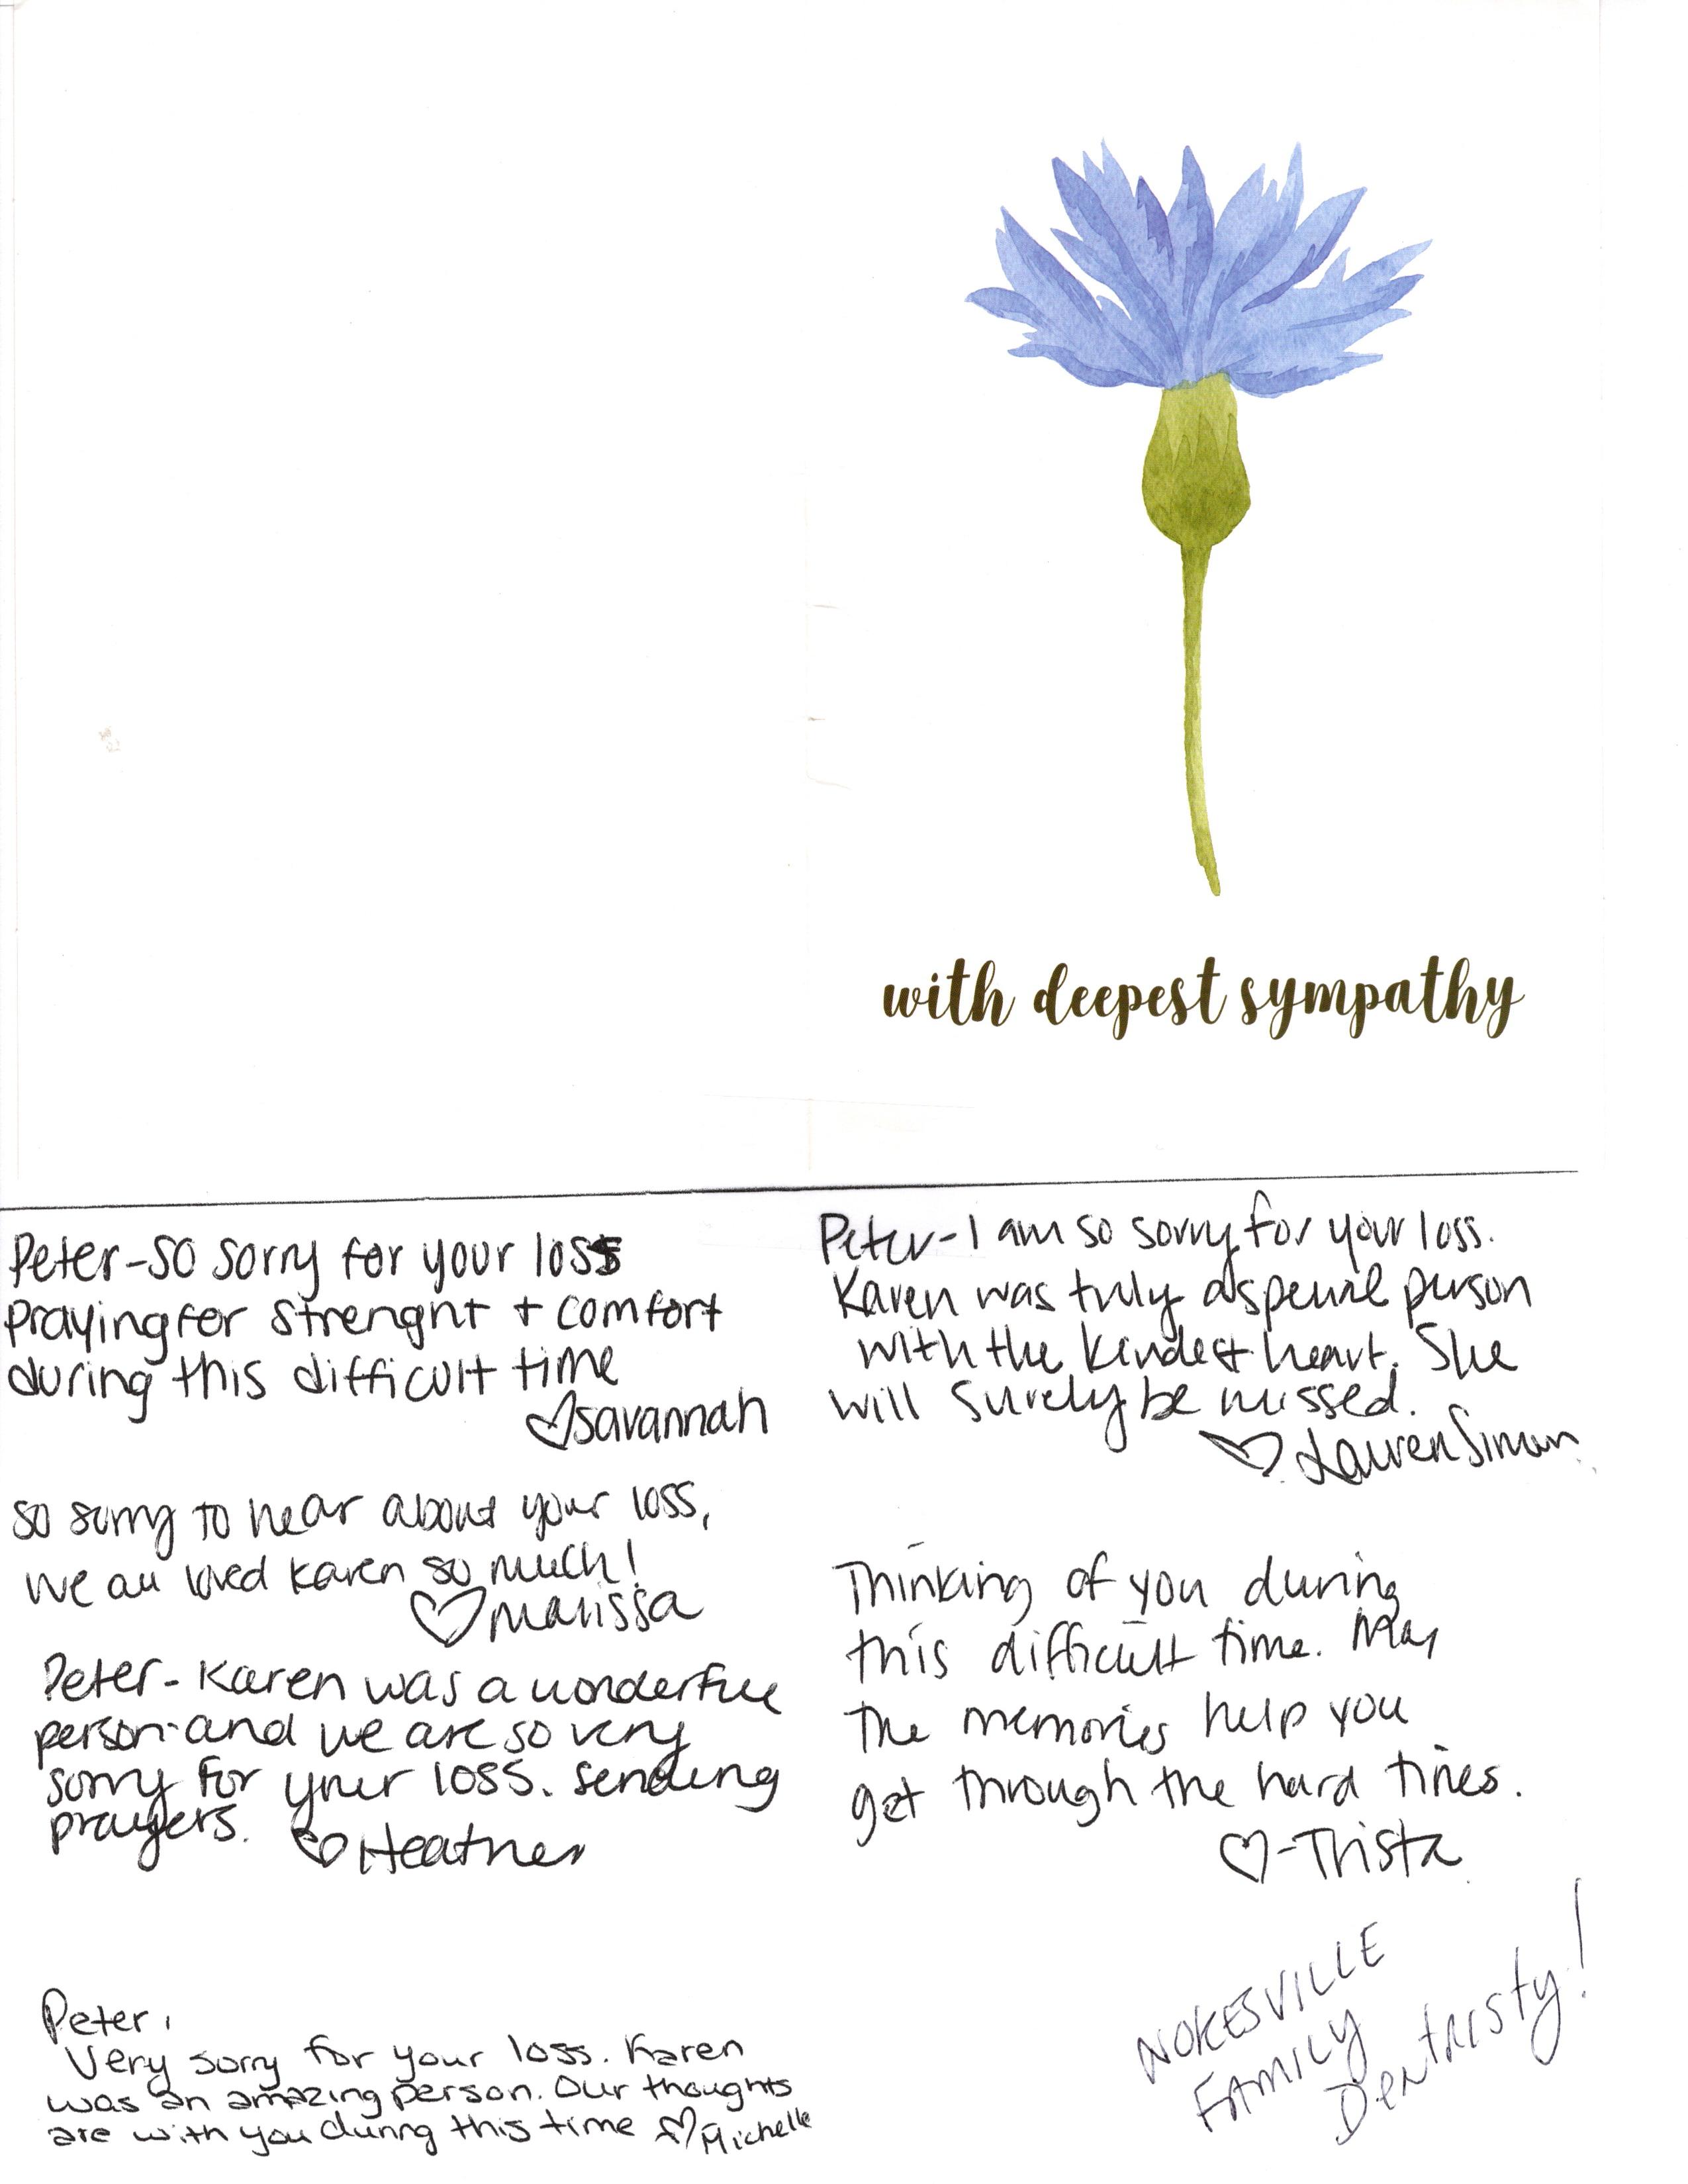 with deepest sympathy
Peter-so sorry for your loss
praying for strenght + comfort
during this difficult time
♡savannah
so sorry to hear about your loss,
we all loved Karen so much!
♡Marissa
Peter- Karen was a wonderful
person and we are so very
sorry for your loss. Sending
prayers. ♡Heather
Peter,
Very sorry for your loss. Karen
was an amazing person. Our thoughts
are with you during this time ♡Michelle
Peter-I am so sorry for your loss.
Karen was truly a special person
with the kindest heart. She
will surely be missed.
♡ Lauren Simon
Thinking of you during
this difficult time. May
the memories help you
get through the hard times.
♡-Trista
NOKESVILLE
FAMILY
Dentristy!